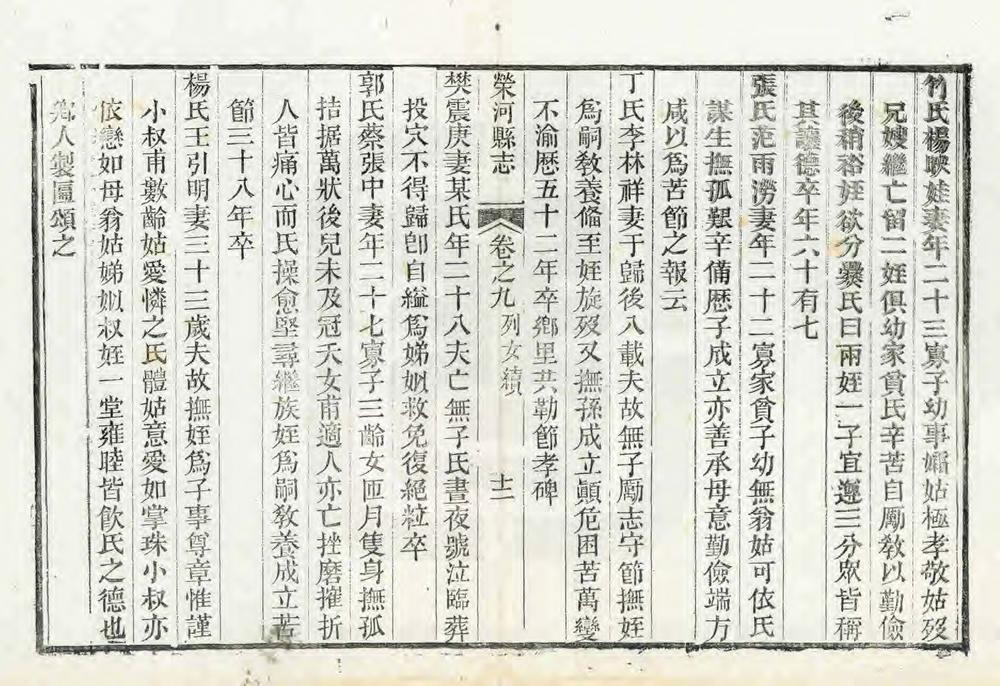 竹氏楊映娃妻年二十三寡子幼事孀姑極孝敬姑歿
兄嫂繼亡留二姪俱幼家貧氏辛苦自勵敎以勤儉
後稍裕姪欲分爨氏曰兩姪一子宜遵三分眾皆稱
其讓德卒年六十有七
張氏范雨澇妻年二十二寡家貧子幼無翁姑可依氏
謀生撫孤艱辛備歷子成立亦善承母意勤儉端方
咸以爲苦節之報云
丁氏李林祥妻于歸後八載夫故無子勵志守節撫姪
爲嗣敎養備至姪旋歿又撫孫成立顚危困苦萬變
不渝歷五十二年卒鄉里共勒節孝碑
榮河縣志 卷之九 列女續 十二
樊震庚妻某氏年二十八夫亡無子氏晝夜號泣臨葬
投穴不得歸卽自縊爲娣姒救免復絕粒卒
郭氏蔡張中妻年二十七寡子三齡女匝月隻身撫孤
拮据萬狀後兒未及冠夭女甫適人亦亡挫磨摧折
人皆痛心而氏操愈堅尋繼族姪爲嗣敎養成立苦
節三十八年卒
楊氏王引明妻三十三歲夫故撫姪爲子事尊章惟謹
小叔甫數齡姑愛憐之氏體姑意愛如掌珠小叔亦
依戀如母翁姑娣姒叔姪一堂雍睦皆飮氏之德也
鄉人製匾頌之